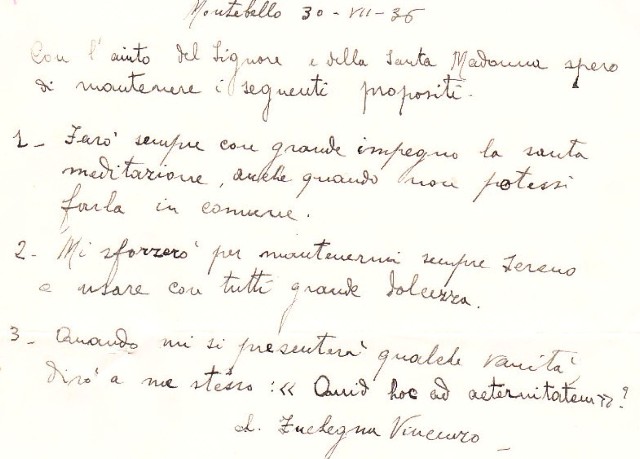 Montebello 30-VII-36
Con l'aiuto del Signore e della Santa Madonna spero
di mantenere i seguenti propositi.
1- Farò sempre con grande impegno la santa
meditazione, anche quando non potessi
farla in comune.
2- Mi sforzerò per mantenermi sempre sereno
e usare con tutti grande dolcezza.
3- Quando mi si presenterà qualche vanità,
dirò a me stesso: « Quid hoc ad aeternitatem »?
Vincenzo